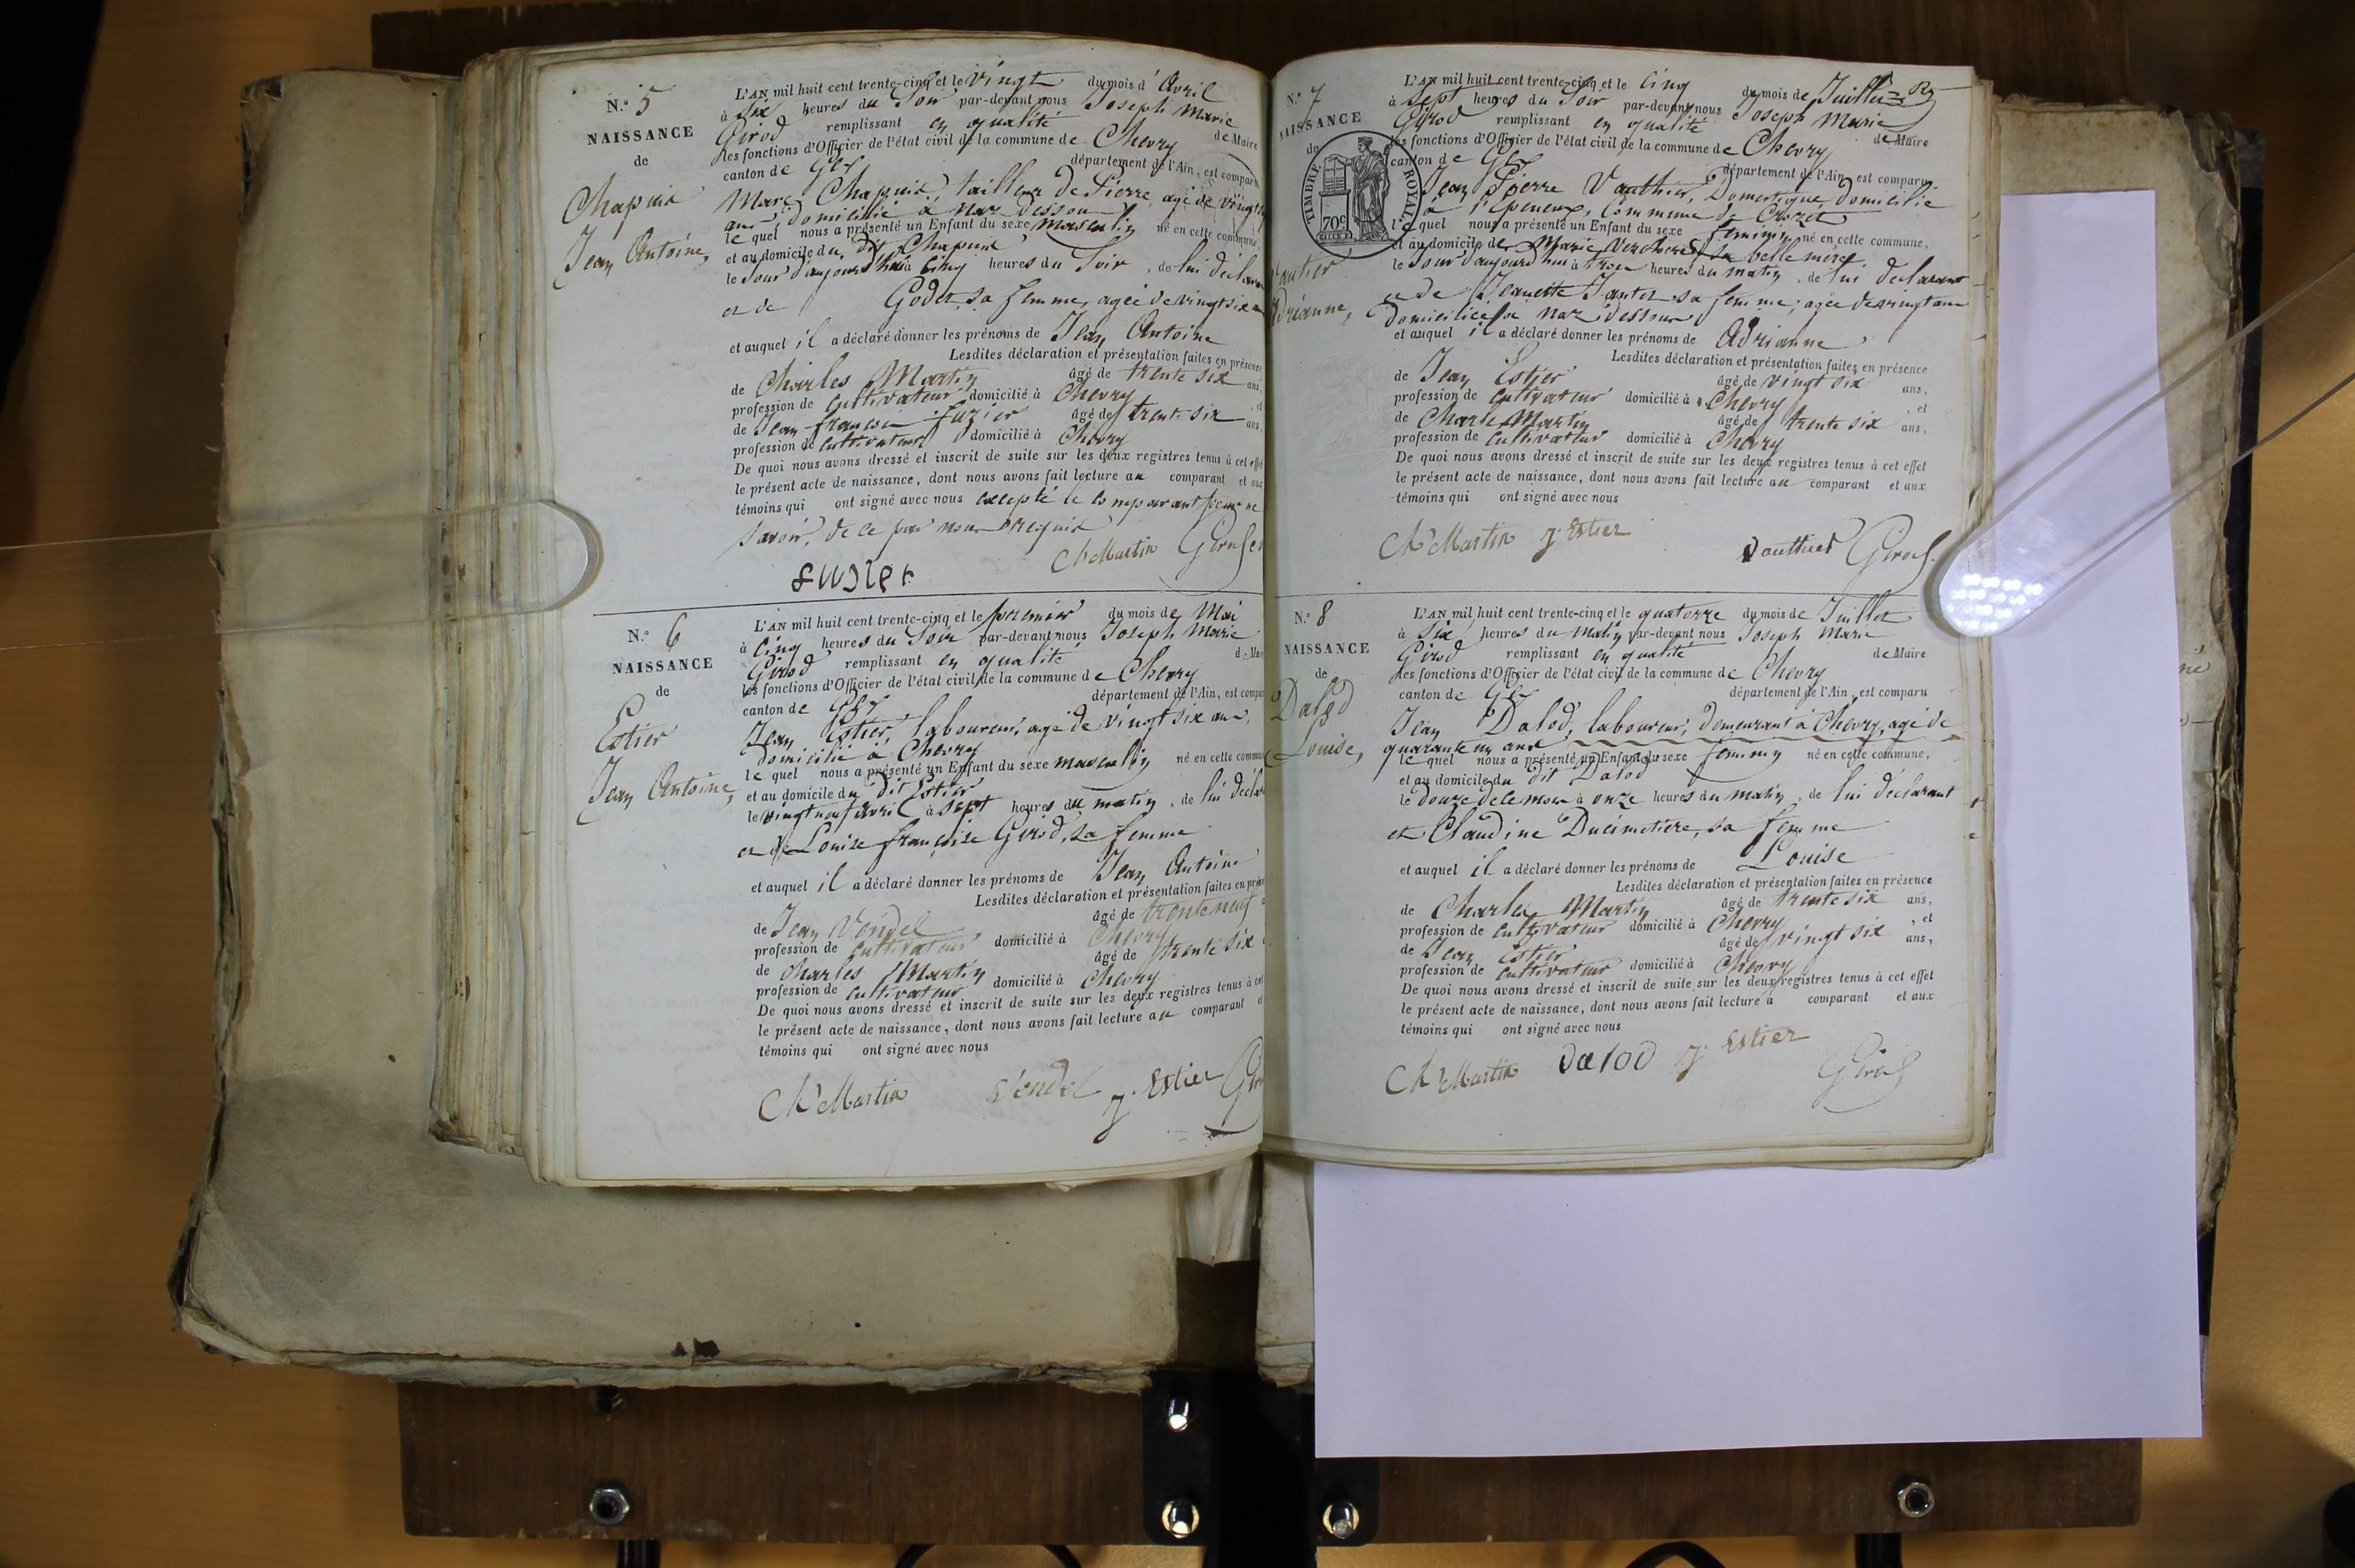 N.° 5
NAISSANCE
de
Chapuis
Jean Antoine,
L'AN mil huit cent trente-cinq et le vingt du mois d' Avril
à Six heures du Soir par-devant nous Joseph Marie
Girod remplissant en qualité de Maire
les fonctions d'Officier de l'état civil de la commune de Chevry
canton de Gex département de l'Ain, est comparu
Marc Chapuis, tailleur de Pierre, agé de vingt
ans, domicilié à Naz dessous
le quel nous a présenté un Enfant du sexe masculin né en cette commune,
et au domicile du dit Chapuis
le Jour d'aujourd'hui à Cinq heures du Soir, de lui déclarant
et de Godet, sa femme, agée de vingt six ans
et auquel il a déclaré donner les prénoms de Jean Antoine
Lesdites déclaration et présentation faites en présence
de Charles Martin âgé de trente six ans,
profession de cultivateur domicilié à Chevry, et
de Jean françois fuzier âgé de trente six ans,
profession de cultivateur domicilié à Chevry
De quoi nous avons dressé et inscrit de suite sur les deux registres tenus à cet effet
le présent acte de naissance, dont nous avons fait lecture au comparant et aux
témoins qui ont signé avec nous excepté le comparant pour ne
savoir, de ce par nous requis
Ch Martin Girod
fuzier
N.° 6
NAISSANCE
de
Estier
Jean Antoine,
L'AN mil huit cent trente-cinq et le premier du mois de Mai
à Cinq heures du Soir par-devant nous Joseph Marie
Girod remplissant en qualité de Maire
les fonctions d'Officier de l'état civil de la commune de Chevry
canton de Gex département de l'Ain, est comparu
Jean Estier, laboureur, agé de vingt six ans,
domicilié à Chevry
le quel nous a présenté un Enfant du sexe masculin né en cette commune
et au domicile du dit Estier
le vingt neuf avril à sept heures du matin, de lui déclarant
et de Louise françoise Girod, sa femme
et auquel il a déclaré donner les prénoms de Jean Antoine
Lesdites déclaration et présentation faites en présence
de Jean Vendel âgé de trente neuf
profession de cultivateur domicilié à Chevry
de Charles Martin âgé de trente six
profession de cultivateur domicilié à Chevry
De quoi nous avons dressé et inscrit de suite sur les deux registres tenus à cet
le présent acte de naissance, dont nous avons fait lecture au comparant et
témoins qui ont signé avec nous
Ch Martin Vendel j. Estier Girod
N.° 7
NAISSANCE
de
Vautier
Adrianne,
TIMBRE ROYAL
70c
L'AN mil huit cent trente-cinq et le Cinq du mois de Juillet
à Sept heures du Soir par-devant nous Joseph Marie
Girod remplissant en qualité de Maire
les fonctions d'Officier de l'état civil de la commune de Chevry
canton de Gex département de l'Ain, est comparu
Jean Pierre Vauthier, Domestique, domicilié
à l'Epeneux, Commune de Crozet
le quel nous a présenté un Enfant du sexe féminin né en cette commune,
et au domicile de Marie Verchere sa belle mère
le Jour d'aujourd'hui à trois heures du matin, de lui déclarant
et de Jeanette Jantet sa femme, agée de vingt ans
domiciliée à naz dessous
et auquel il a déclaré donner les prénoms de Adrianne
Lesdites déclaration et présentation faites en présence
de Jean Estier âgé de vingt six ans,
profession de cultivateur domicilié à Chevry, et
de Charle Martin âgé de trente six ans,
profession de cultivateur domicilié à Chevry
De quoi nous avons dressé et inscrit de suite sur les deux registres tenus à cet effet
le présent acte de naissance, dont nous avons fait lecture au comparant et aux
témoins qui ont signé avec nous
Ch Martin j. Estier Vauthier Girod
N.° 8
NAISSANCE
de
Dalod
Louise,
L'AN mil huit cent trente-cinq et le quatorze du mois de Juillet
à Six heures du matin par-devant nous Joseph Marie
Girod remplissant en qualité de Maire
les fonctions d'Officier de l'état civil de la commune de Chevry
canton de Gex département de l'Ain, est comparu
Jean Dalod, laboureur, demeurant à Chevry, agé de
quarante un ans
le quel nous a présenté un Enfant du sexe feminin né en cette commune,
et au domicile du dit Dalod
le douze de le mois à onze heures du matin, de lui déclarant
et Claudine Ducimetiere, sa femme
et auquel il a déclaré donner les prénoms de Louise
Lesdites déclaration et présentation faites en présence
de Charles Martin âgé de trente six ans,
profession de cultivateur domicilié à Chevry, et
de Jean Estier âgé de vingt six ans,
profession de cultivateur domicilié à Chevry
De quoi nous avons dressé et inscrit de suite sur les deux registres tenus à cet effet
le présent acte de naissance, dont nous avons fait lecture à comparant et aux
témoins qui ont signé avec nous
Ch Martin Dalod j. Estier Girod